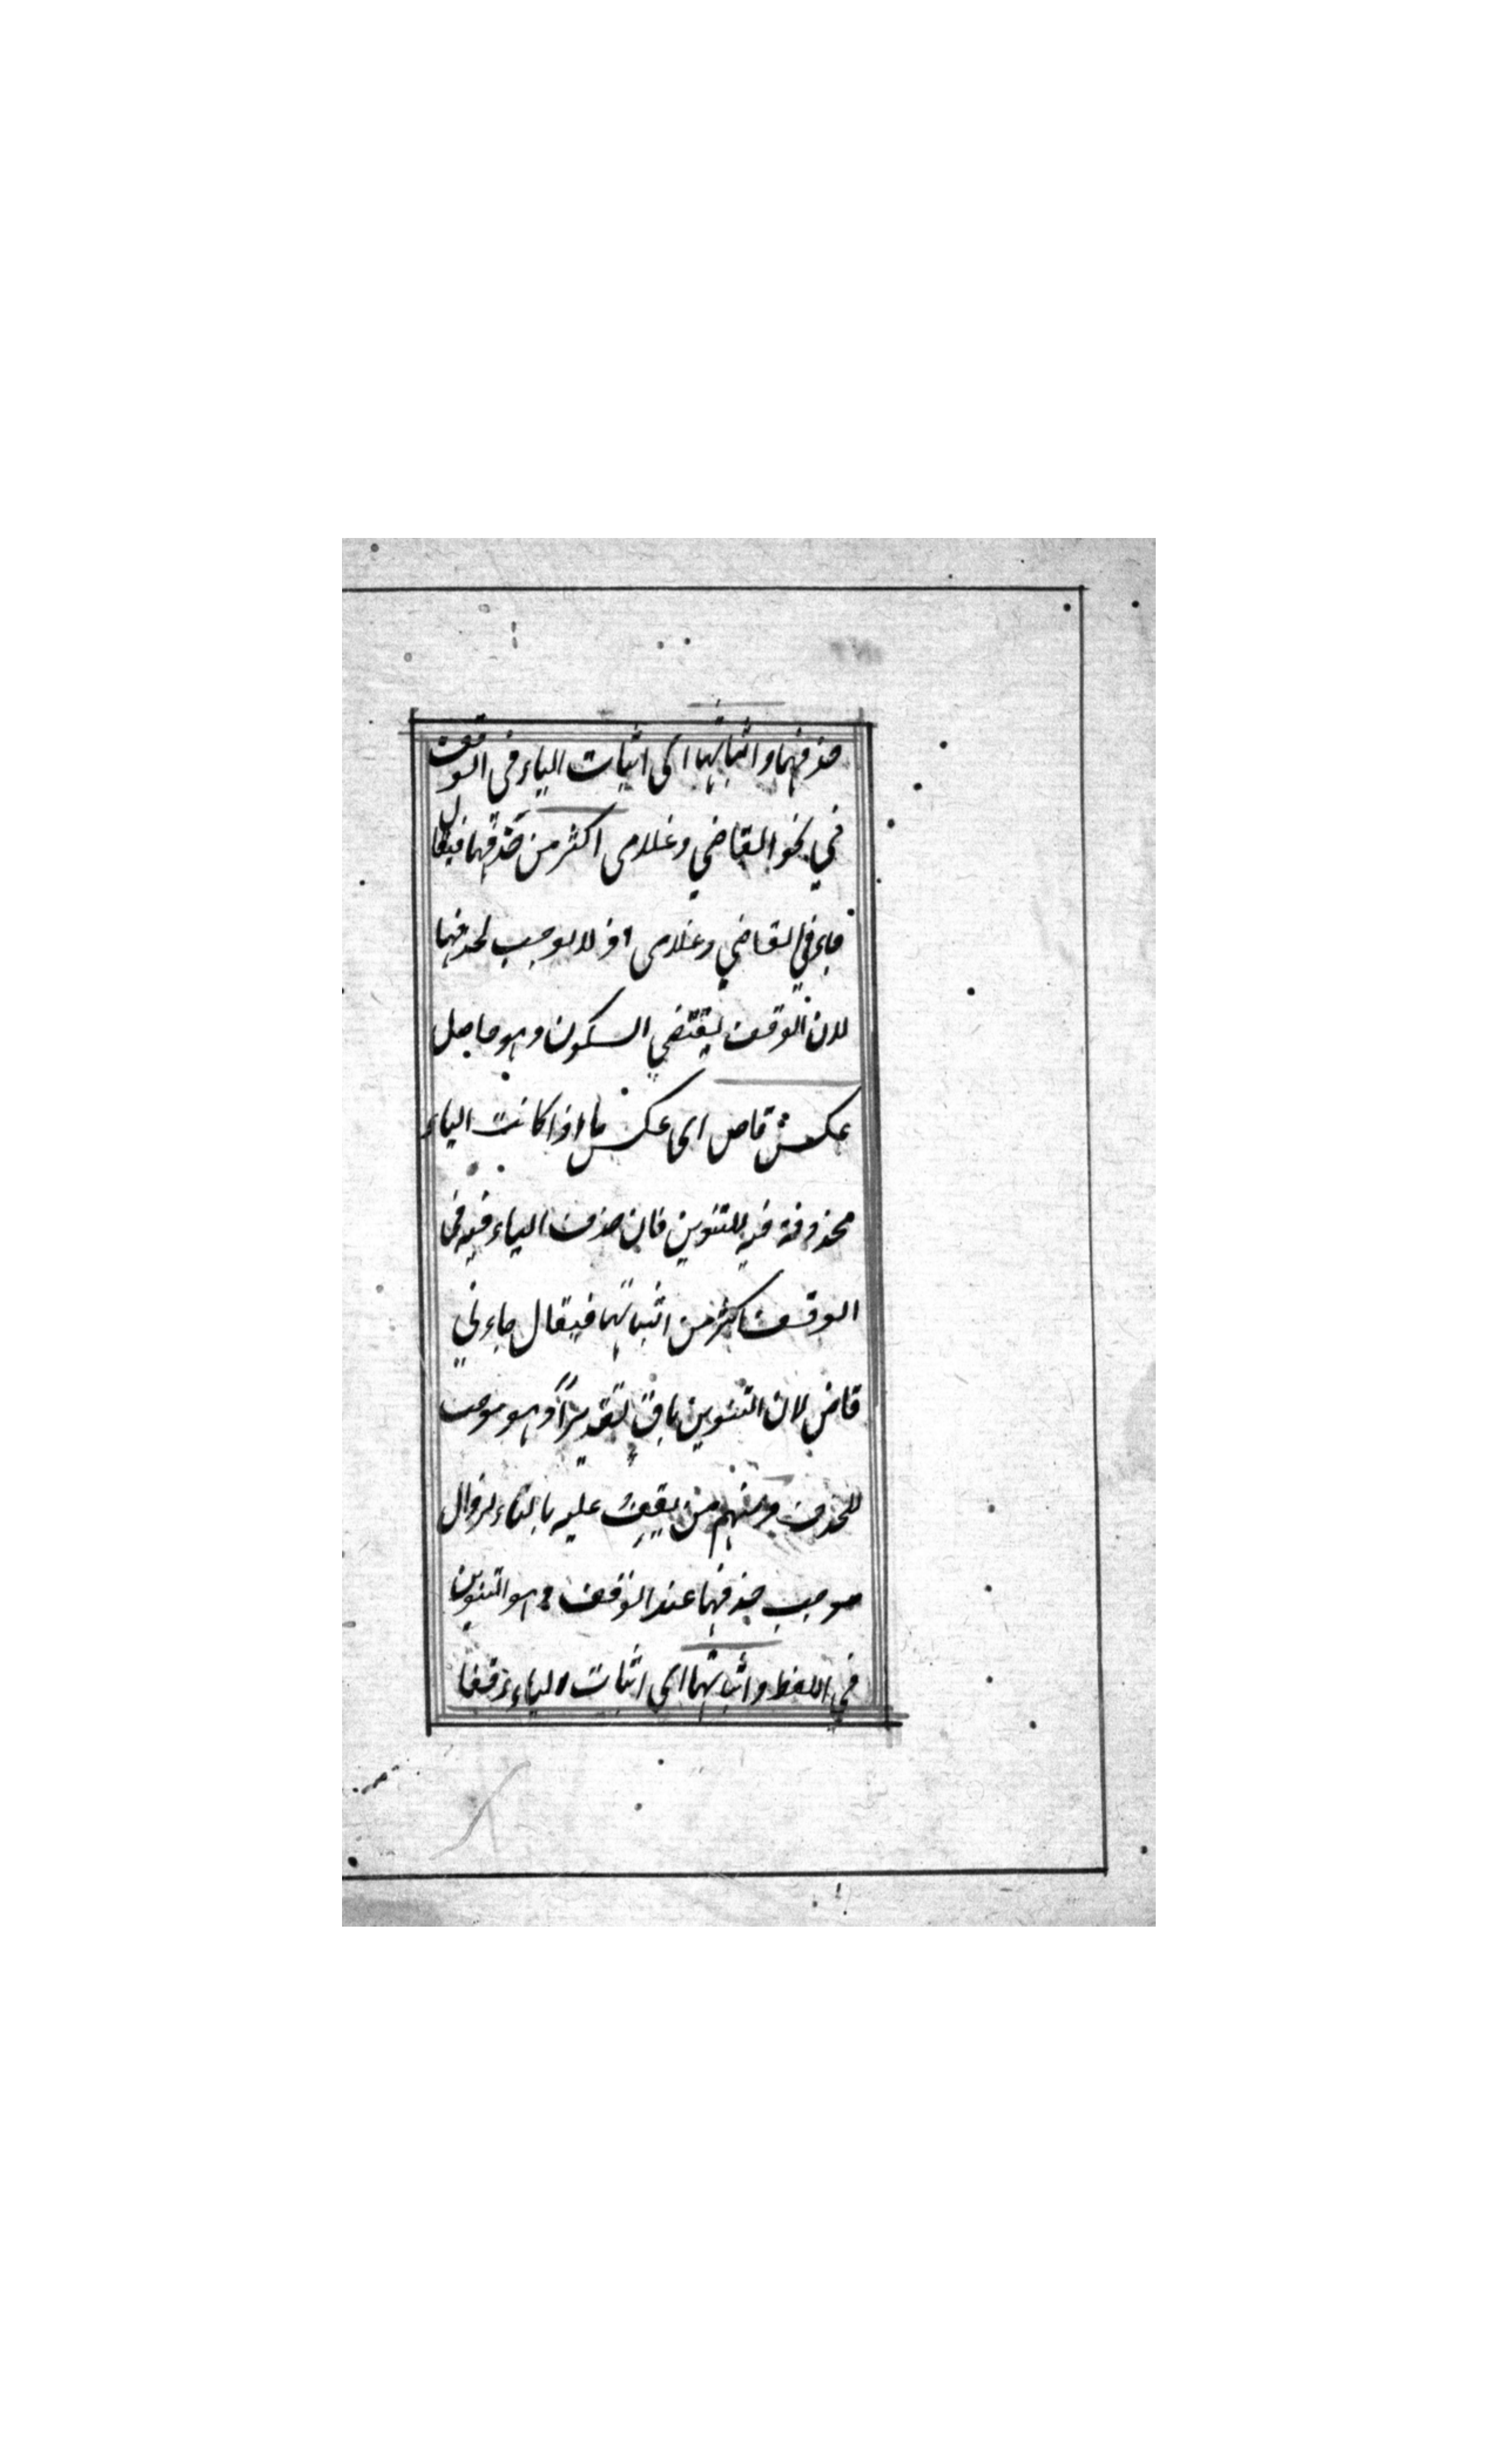 حذفهما واثباتهما ای اثبات الیاء فی الوقف
في نحو القاضي وغلامی اکثر من حذفهما فیقال
جاءني القاضي وغلامی اذ لا موجب لحذفهما
لان الوقف یقتضي السکون وهو حاصل
عکس قاض ای عکس ما اذا کانت الیاء
محذوفة فیه للتنوین فان حذف الیاء فیه فی
الوقف اکثر من اثباتها فیقال جاءني
قاض لان التنوین باق تقدیراً وهو موجب
للحذف ومنهم من یقف علیه بالیاء لزوال
موجب حذفها عند الوقف وهو التنوین
في اللفظ واثباتهما ای اثبات الیاء وقفا